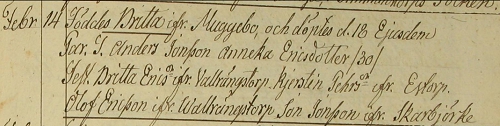 Febr. 14 Föddes Britta ifr. Muggebo, och döptes d. 18 Ejusdem
Par. S. Anders Jonsson Annika Ericsdotter /30/
Test. Britta Erics dr. ifr. Valtrångstorp. Kjerstin Pehrs dr. ifr. Estorp.
Olof Ericsson ifr. Waltrångstorp Jon Jonsson ifr. Skarbjörke